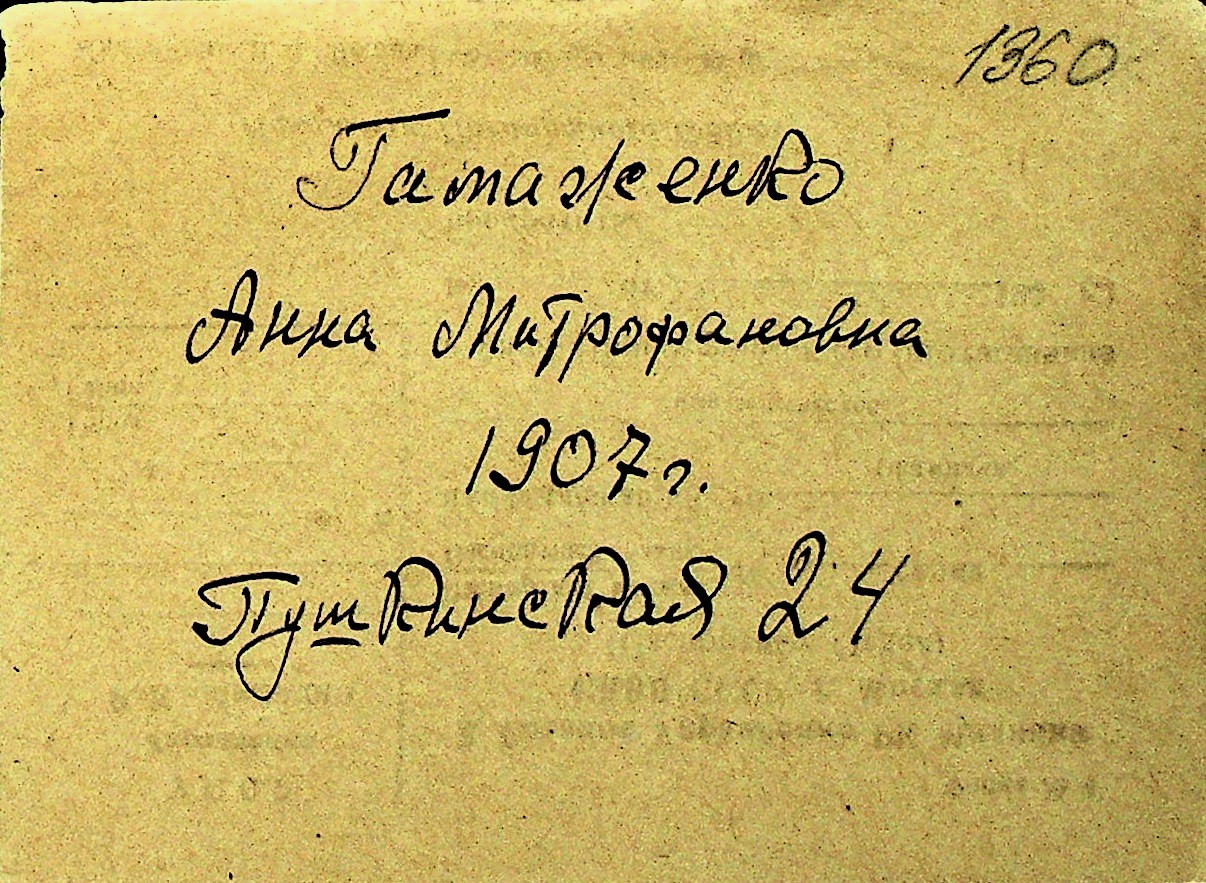 1360
Гамаженко
Анна Митрофановна
1907 г.
Пушкинская 24